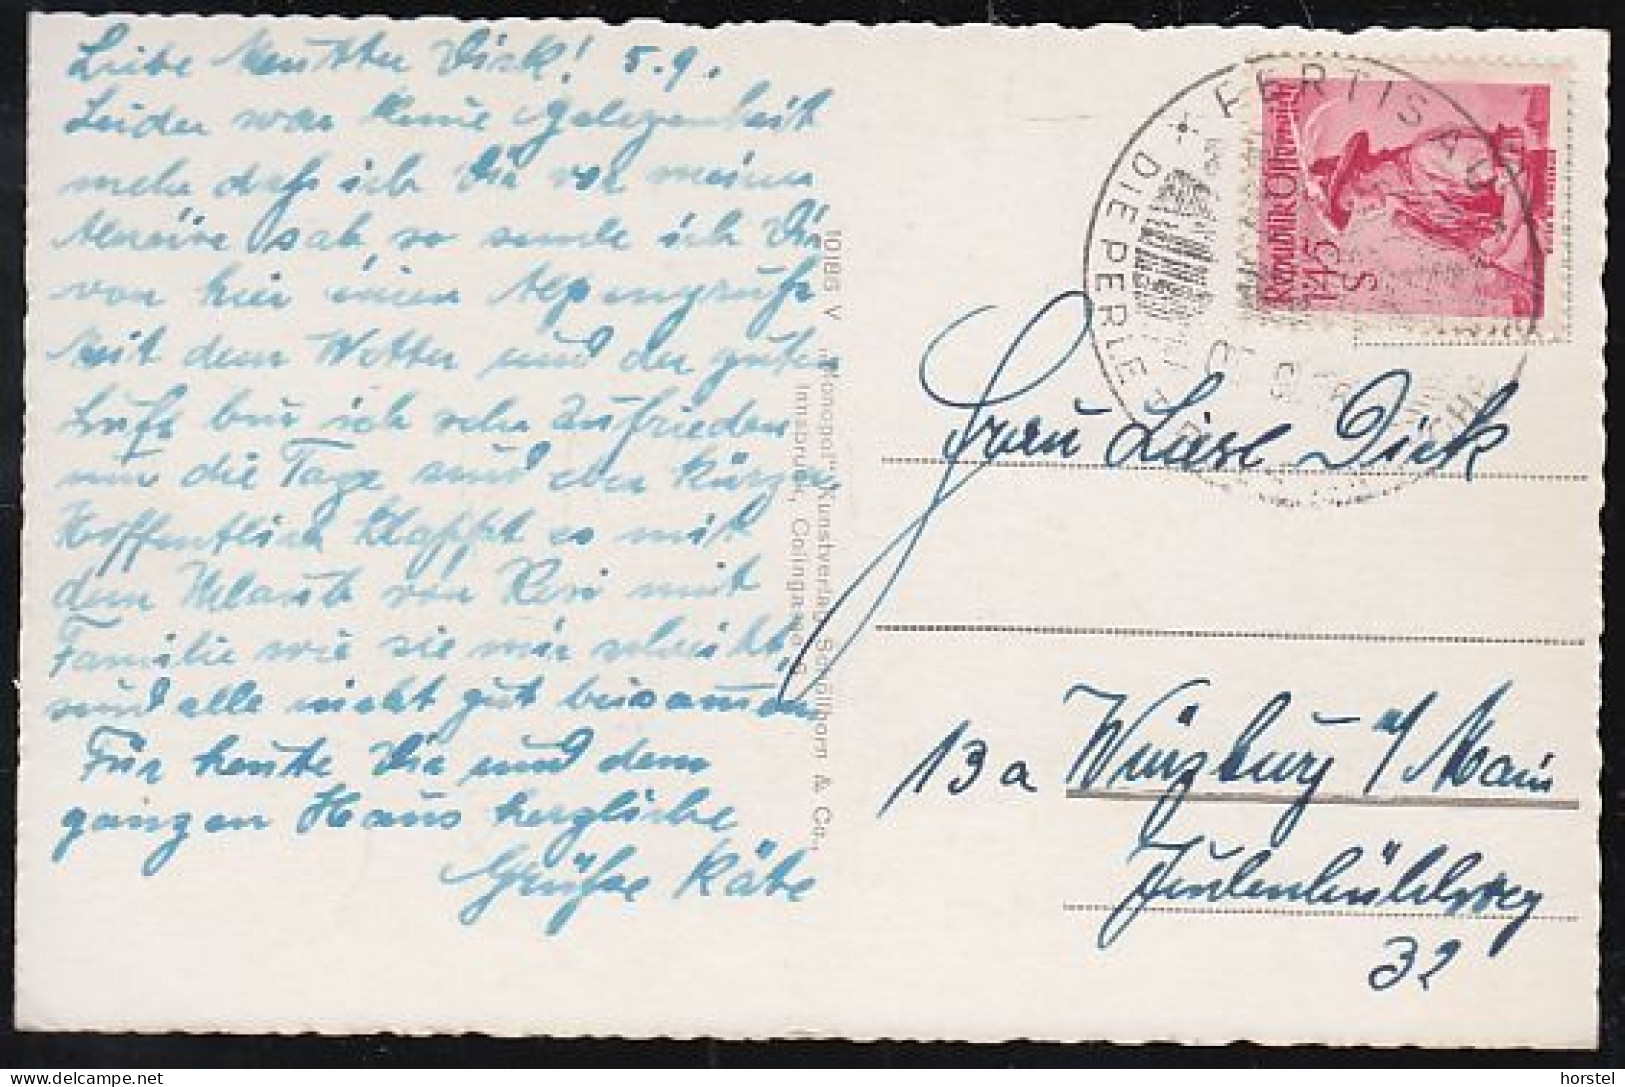 Liebe Mutter Dick! 5.9.
Leider war keine Gelegenheit
mehr daß ich Dir vor meiner
Abreise sah so sende ich Dir
von hier einen Alpengruß
Mit dem Wetter und der guten
Luft bin ich sehr zufrieden
nur die Tage sind eben kürzer
Hoffentlich klappt es mit
dem Urlaub von Resi mit
Familie wie sie mir schreibt,
sind alle nicht gut beisammen
Für heute Dir und dem
ganzen Haus herzliche
Grüße Käte
10186 V "Monopol" Kunstverlag Schöllhorn & Co.,
Innsbruck,
FERTISAU
DIE PERLE
Republik Österreich
1·45
S
Frau Liesl Dick
13a Würzburg a/Main
32
horstel
www.delcampe.net